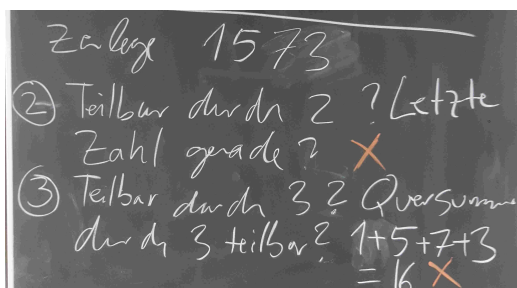 Zerlege 1573
② Teilbar durch 2 ? Letzte
Zahl gerade ? ✗
③ Teilbar durch 3 ? Quersumme
durch 3 teilbar? 1+5+7+3
= 16 ✗